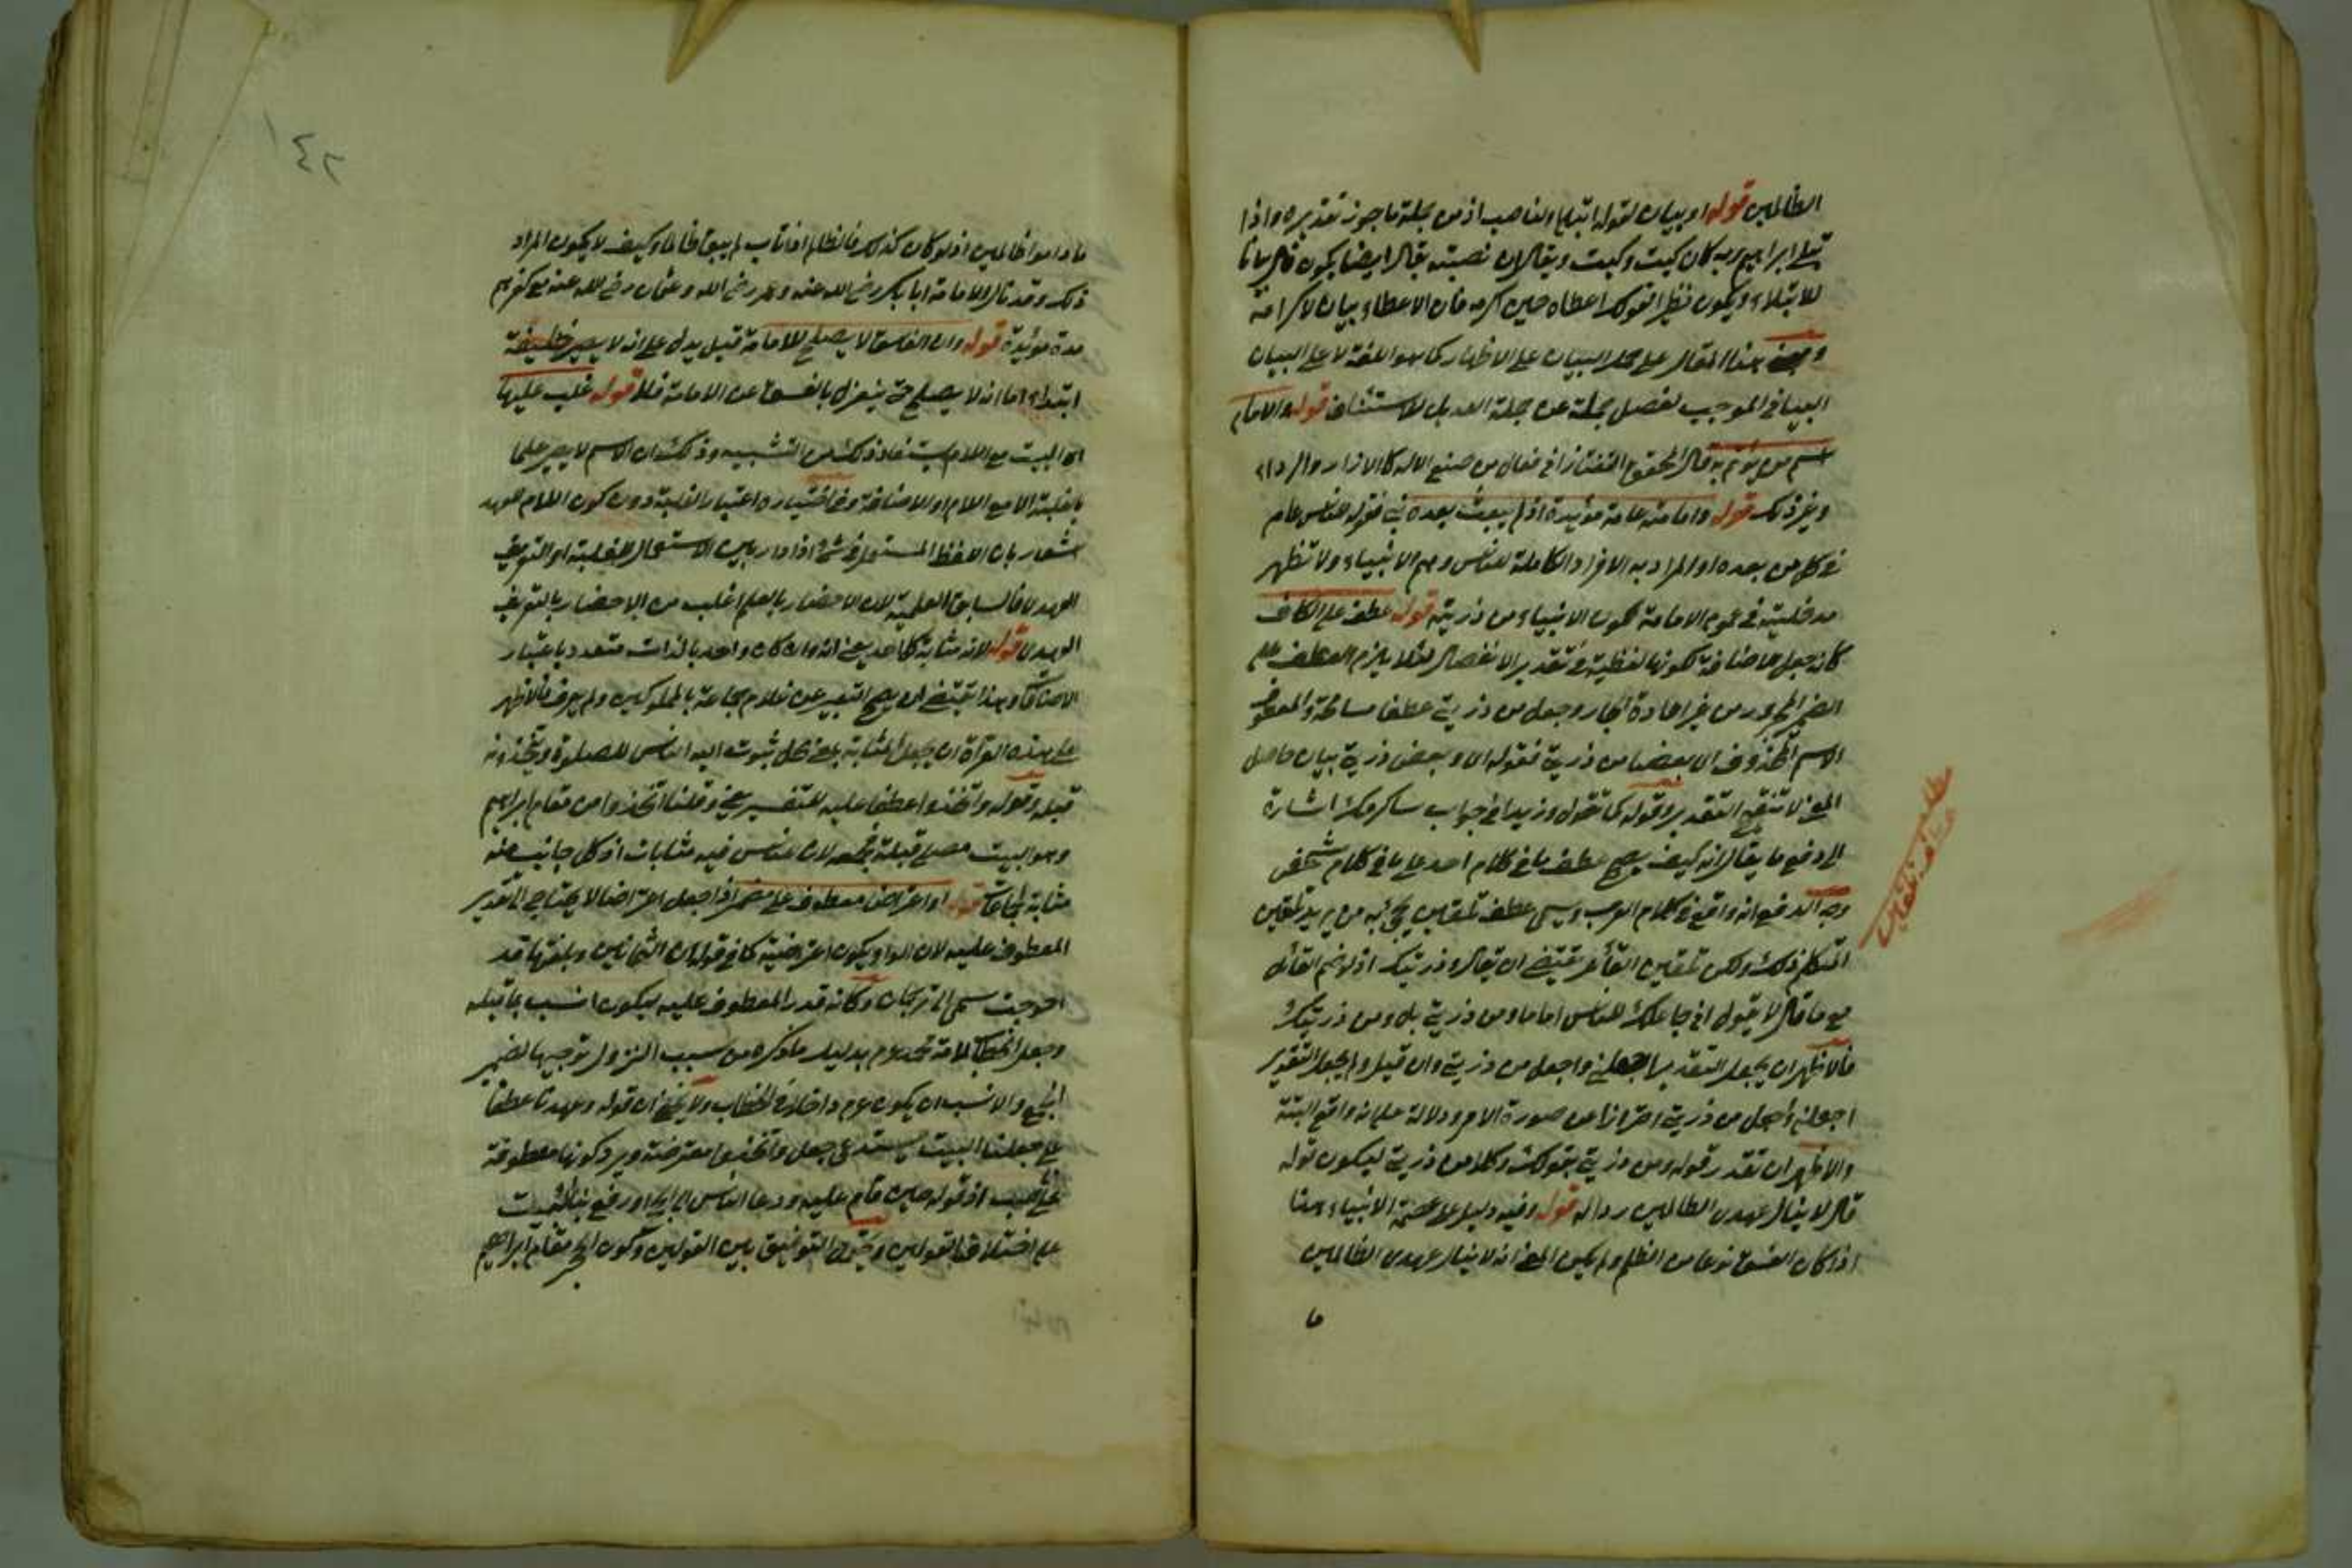 الظالمين قوله او بيان لقوله ابتلي والناصب اذ من جملة ما جوز تقديره واذا
ابتلى ابراهيم ربه كان كيت وكيت ويقال ان نصبته بقال ايضا يكون قال بيانا
للابتلاء ويكون نظير قولك اعطاه حين اكرمه فان الاعطاء بيان لاكرامه
هذا المقال على محل البيان على الاظهار كما هو اللغة لا على البيان
البياني الموجب لفصل جملة عن جملة العديل للاستئناف قوله والامام
اسم من يؤتم به قال المحقق التفتازاني فعال من صيغ الالة كالازار والرداء
وغير ذلك قوله وامامته عامة مؤبدة اذ لم يبعث بعده نبي فقوله للناس عام
في كل من بعده او المراد به الافراد الكاملة للناس وهم الانبياء ولا تظهر
مدخلية في عموم الامامة لكون الانبياء من ذريته قوله عطف على الكاف
كانه جعل اضافة لكونها لفظية في تقدير الانفصال لئلا يلزم العطف على
الضمير المجرور من غير اعادة الجار وجعل من ذريتي عطفا مسامحة والمعطوف
الاسم المحذوف اي بعضا من ذريتي فقوله اي وبعض ذريتي بيان حاصل
المعنى لا تنقيح التقدير وقوله كما تقول وزيدا في جواب ساكرمك اشارة
الى دفع ما يقال انه كيف يصح عطف ما في كلام احد على ما في كلام شخص
وجه الدفع انه واقع في كلام العرب ويسمى عطف تلقين يجيء به من يريد تلقين
المتكلم ذلك ولكن تلقين القائل يقتضي ان يقال وذريتك اذ لو ضم القائل
مع ما قال لا يقول اني جاعلك للناس اماما ومن ذريتي بل ومن ذريتك
فالاظهر ان يجعل التقدير اجعلني واجعل من ذريتي وان قيل ولم يجعل التقدير
اجعلني واجعل من ذريتي احترازا عن صورة الامر ودلالة على انه واقع البتة
والاظهر ان تقدر قوله ومن ذريتي بقولك وكلا من ذريتي ليكون قوله
قال لا ينال عهدي الظالمين ردا له قوله وفيه دليل على عصمة الانبياء هذا
اذا كان الفسق نوعا من الظلم ولم يكن المعنى انه لا ينال عهدي الظالمين
ما
مطلب
عطف تلقين
١٤٢
ما داموا ظالمين اذ لو كان كذلك فالظالم اذا تاب لم يبق ظالما وكيف لا يكون المراد
ذلك وقد نال الامامة ابا بكر رضي الله عنه وعمر رضي الله وعثمان رضي الله عنه مع كفرهم
مدة مؤبدة قوله وان الفاسق لا يصلح للامامة قيل يدل على انه لا يصير خليفة
ابتداء اما انه لا يصلح حتى ينعزل بالفسق عن الامامة فلا قوله غلب عليها
اي البيت مع اللام يستفاد ذلك من التشبيه وذلك ان الاسم لا يصير علما
بالغلبة الا مع اللام او الاضافة وفي اختياره اعتبار الغلبة دون كون اللام للعهد
اشعار بان اللفظ المستعمل في شيء اذا دار بين الاستعمال للغلبة او التعريف
العهدي فالسابق العلمية لان الاحضار بالعلم اغلب من الاحضار بالتعريف
العهدي قوله لانه مثابة كل احد يعني انه وان كان واحد بالذات متعدد باعتبار
الاضافة وهذا يقتضي ان يصح التعبير عن غلام جماعة بالمملوكين ولم يعرف فالاظهر
على هذه القرآة ان يجعل المثابة بمعنى محل يثوب اليه الناس للصلوة ويتخذونه
قبلة وقوله واتخذوا عطفا عليه للتفسير يعني وقلنا اتخذوا من مقام ابراهيم
وهو البيت مصلى قبلة فجمعه لان للناس فيه مثابات اذ كل جانب منه
مثابة لجماعة قوله او اعتراض معطوف على مضمر اذا جعل اعتراضا لا يحتاج الى تقدير
المعطوف عليه لان الواو يكون اعتراضية كما في قوله ان الثمانين وبلغتها قد
احوجت سمعي الى ترجمان وكانه قدر المعطوف عليه ليكون انسب بما قبله
وجعل الخطاب لامة محمد عم بدليل ما ذكره من سبب النزول توجيها لضمير
الجمع والانسب ان يكون عم داخلا في الخطاب ولا يخفى ان قوله وعهدنا عطفا
على جعلنا البيت يستدعي جعل واتخذوا معترضة ويرد كونها معطوفة
اذ قوله حين قام عليه ودعا الناس الى الحج او رفع بناء البيت
على اختلاف القولين وتحول التوفيق بين القولين وكون الحجر مقام ابراهيم